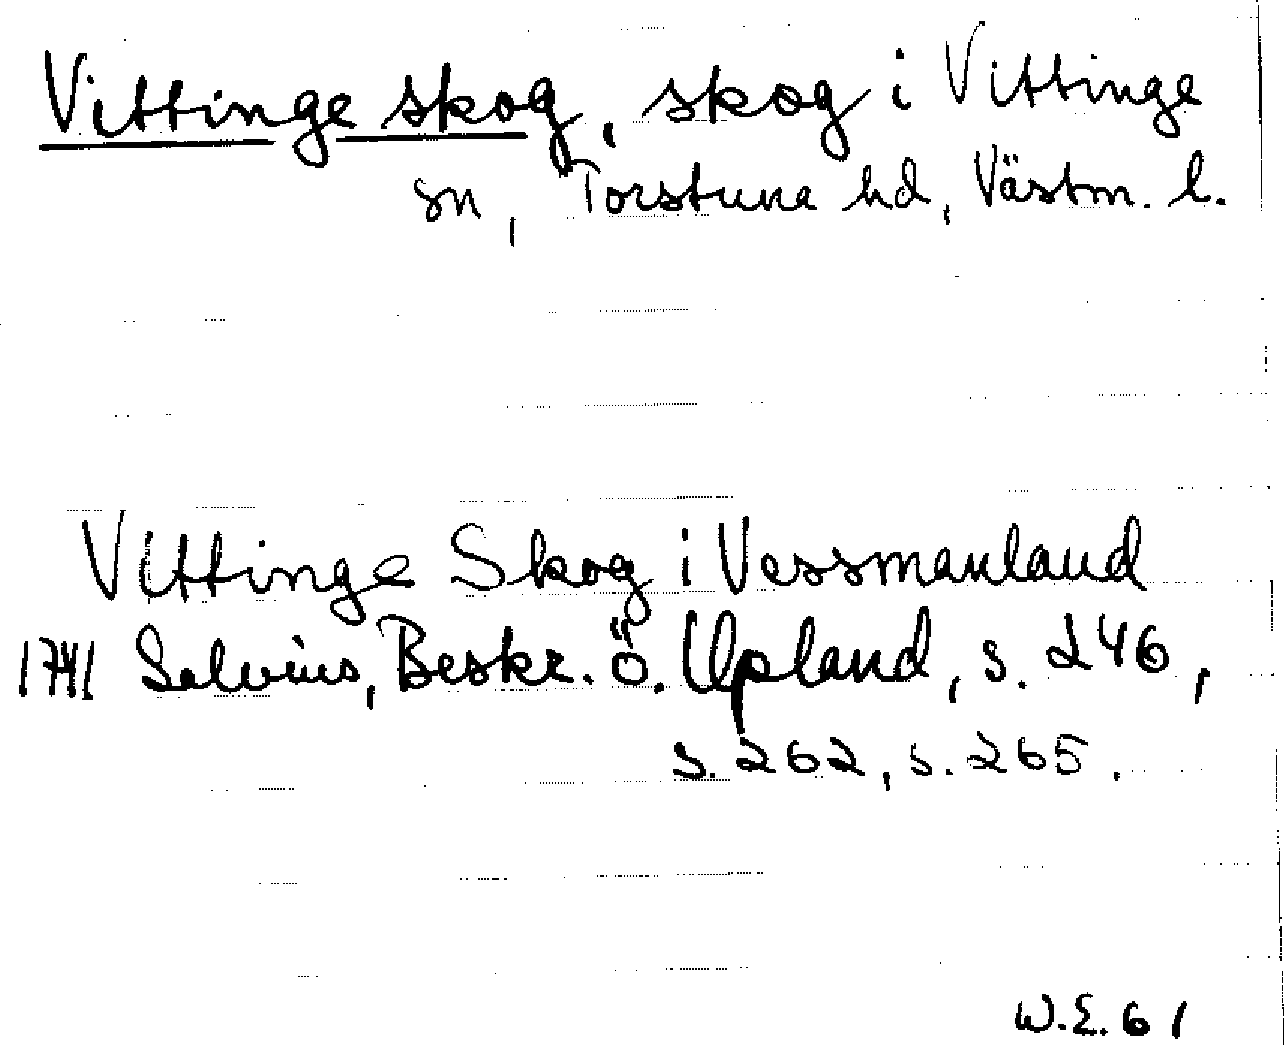 Vittinge skog, skog i Vittinge
sn, Torstuna hd, Västm. l.
Vittinge Skog i Vessmanland
1741 Salvius, Beskr. ö. Upland, s. 246,
s. 262, s. 265.
W.E. 61